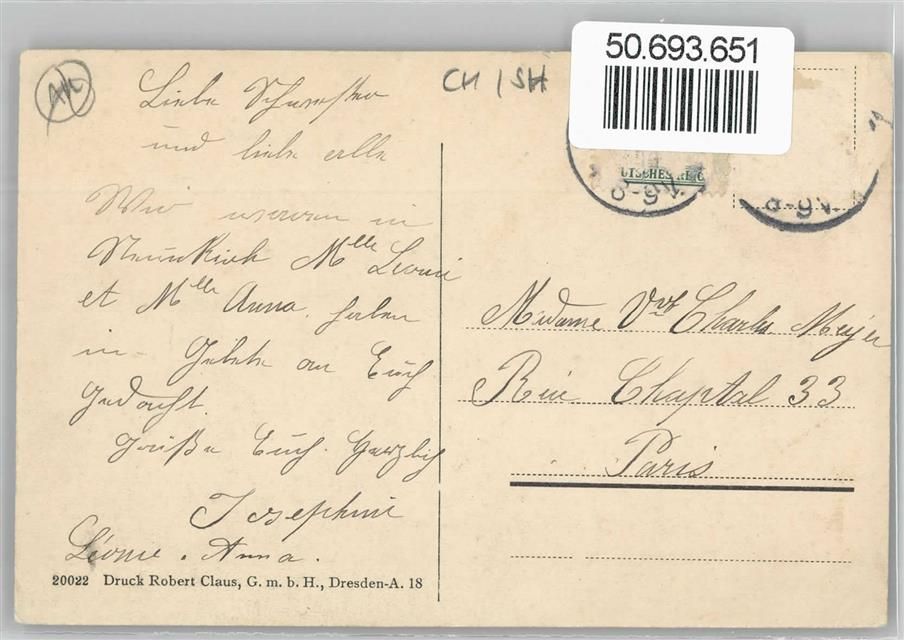 50.693.651
AK
CH / SH
Liebe Schwester
und liebe alle
Wir waren in
Neunkirch Mlle Léonie
et Mlle Anna. haben
in Gebete an Euch
gedacht.
Grüße Euch Herzlich
Josephine
Léonie. Anna.
UTSCHES REIC
8-9V.
8-9V.
Madame Vve Charles Meyer
Rue Chaptal 33
Paris
20022 Druck Robert Claus, G. m. b. H., Dresden-A. 18